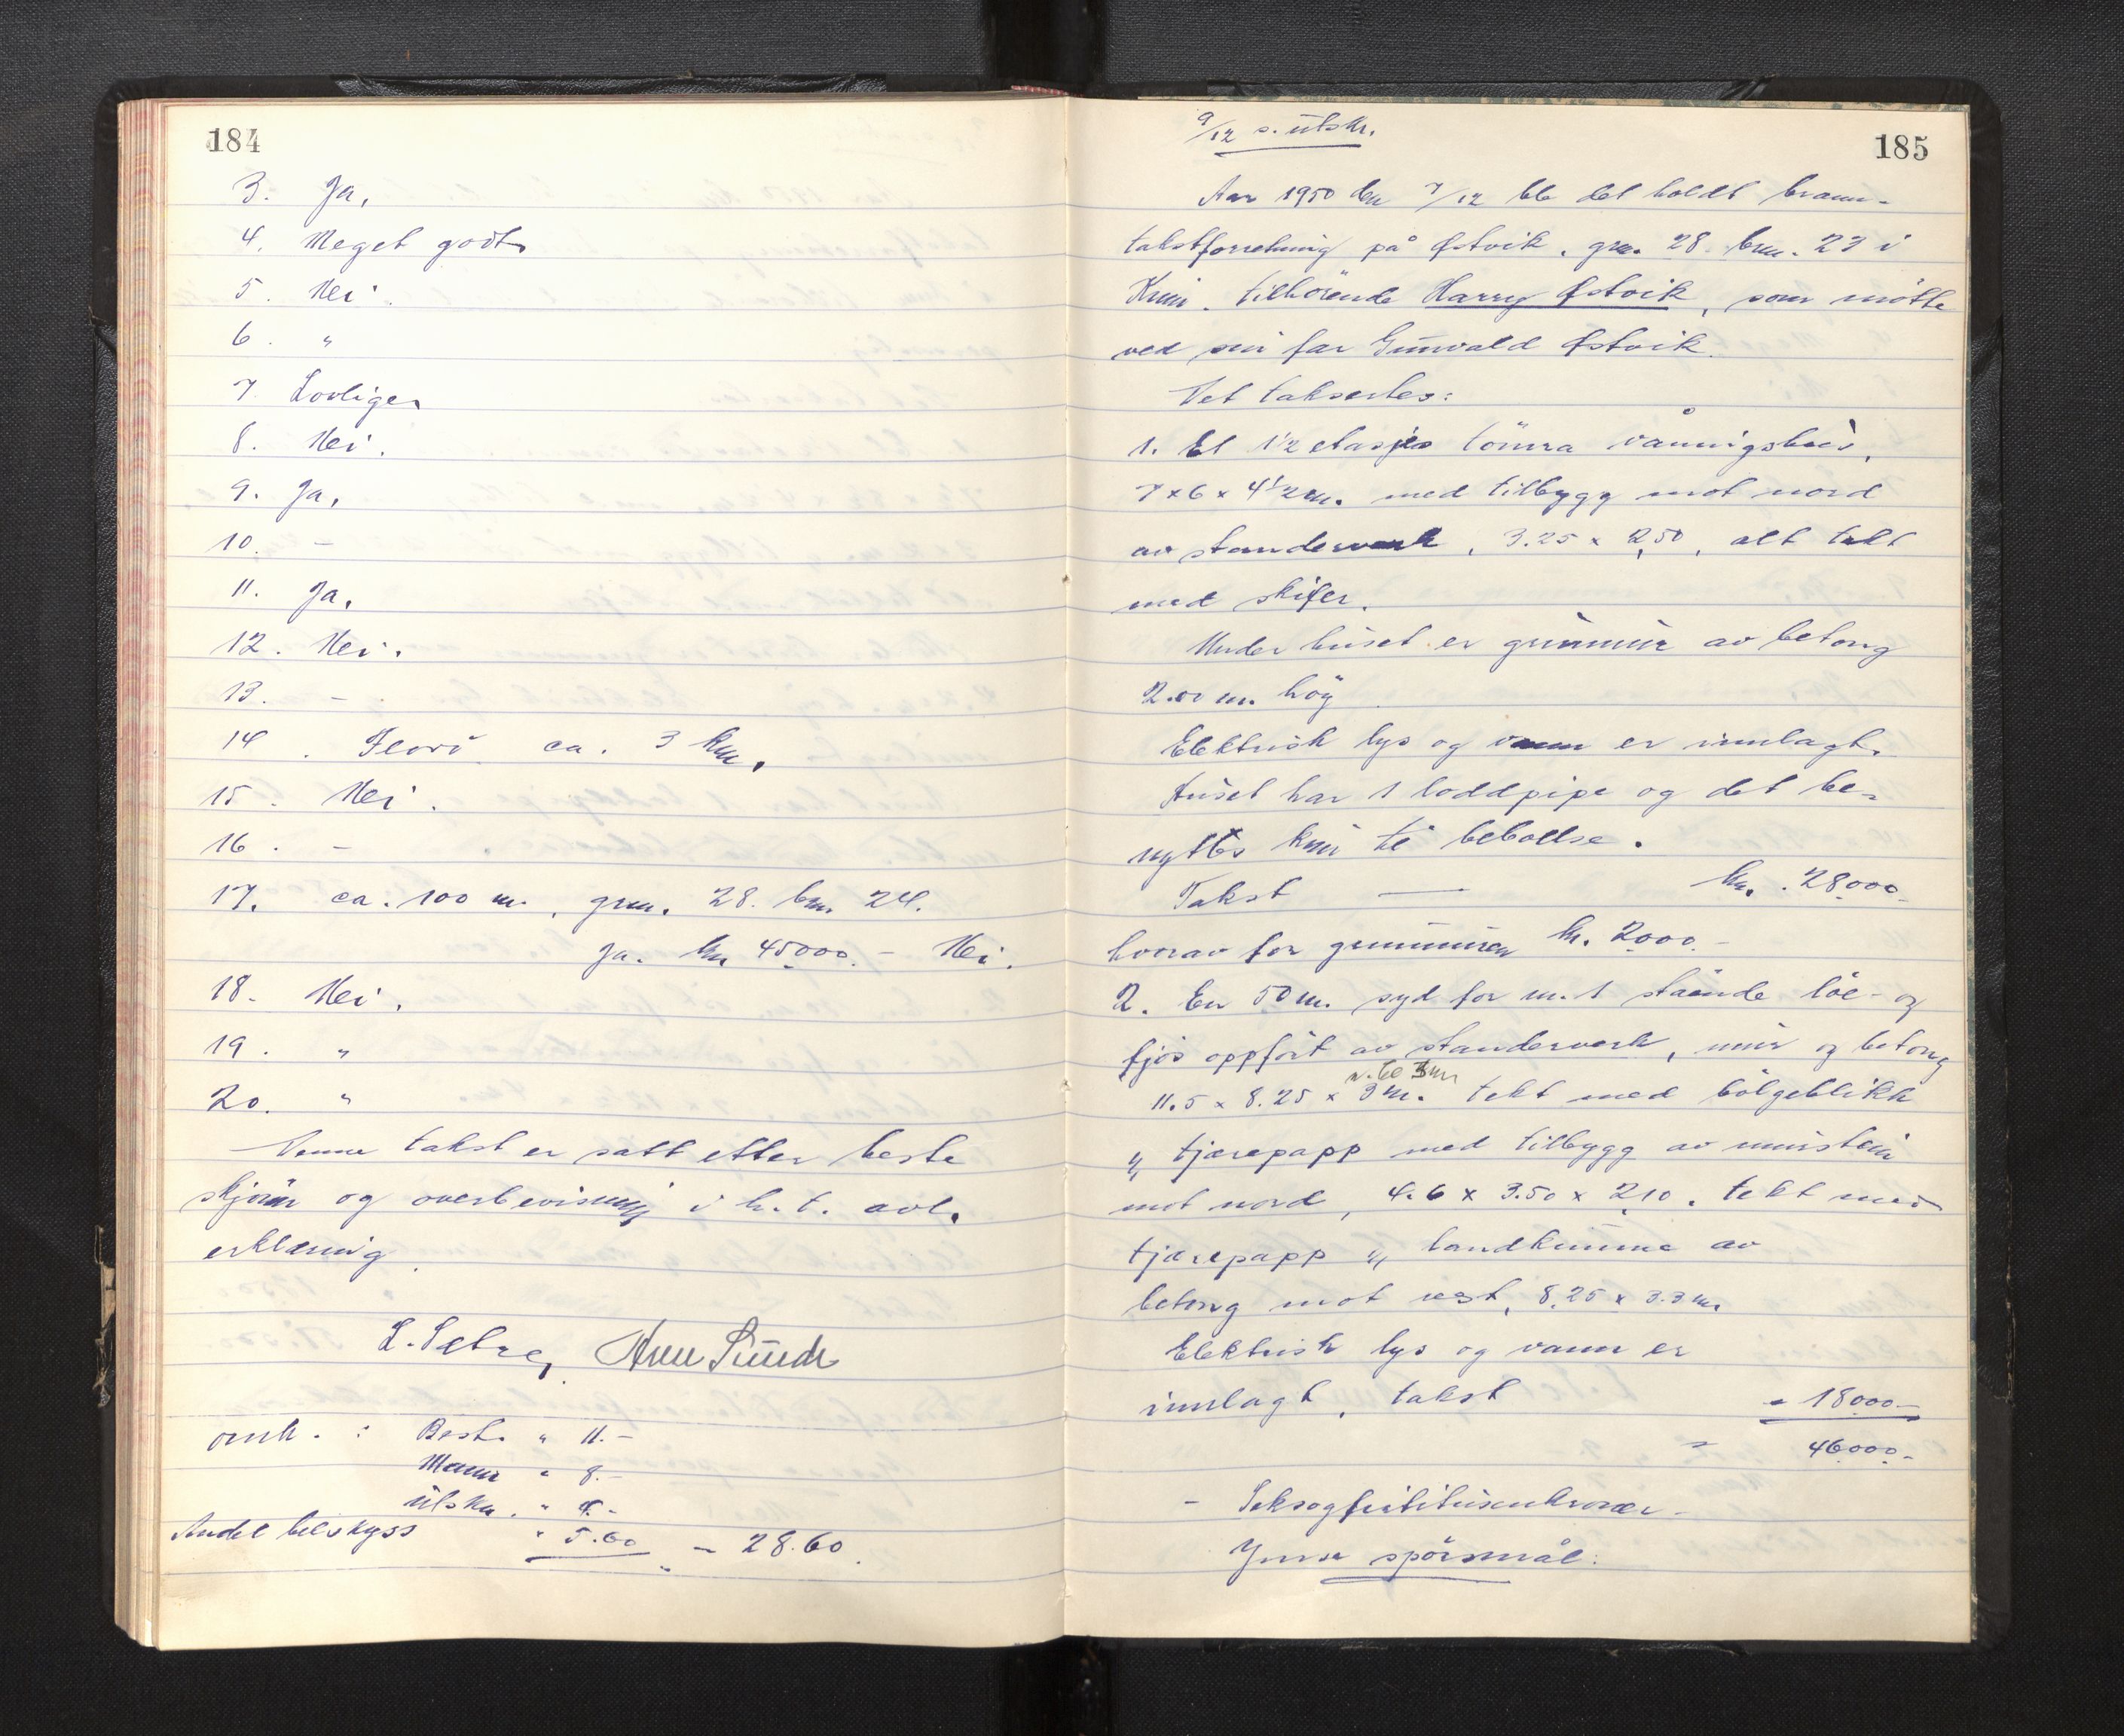 184
3. Ja.
4. Meget godt.
5. Nei.
6. "
7. Lovlige.
8. Nei.
9. Ja.
10. -
11. Ja.
12. Nei.
13. -
14. Florö ca. 3 km.
15. Nei.
16. -
17. ca. 100 m., grnr. 28. brnr. 24.
Ja. kr 45000.- Nei.
18. Nei.
19. "
20. "
Denne takst er satt etter beste
skjönn og overbevisning i h. t. avl.
erklæring.
L. Sætre, Arne Sunde
omk. : Best. " 11.-
Mann " 8.-
utskr. " 4.-
Andel bilskyss " 5.60 - 28.60.
9/12 s. utskr.
185
Aar 1950 den 7/12 ble det holdt brann-
takstforretning på Østvik, gnr. 28. bnr. 23 i
Kinn. tilhörende Harry Østvik, som mötte
ved sin far Gunvald Østvik.
Det taksertes:
1. Et 1 1/2 etasjes tömra våningshus,
7 x 6 x 4 1/2 m. med tilbygg mot nord
av standerverk, 3.25 x 2.50, alt tekt
med skifer.
Under huset er grunnmur av betong
2.00 m. höy.
Elektrisk lys og vann er innlagt.
Huset har 1 loddpipe og det be-
nyttes kun til beboelse.
Takst — kr. 28000.-
hvorav for grunnmuren kr. 2000.-
2. En 50 m. syd for nr. 1 stående löe- og
fjös oppfört av standerverk, mur og betong
11.5 x 8.25 x 3 m. tekt med bölgeblikk
og tjærepapp med tilbygg av murstein
mot nord, 4.6 x 3.50 x 2.10. tekt med
tjærepapp og landkumme av
betong mot vest, 8.25 x 3.3 m.
Elektrisk lys og vann er
innlagt, takst " 18000.-
" 46000.-
- Seksogførtitusenkroner -
Ymse spörsmål: